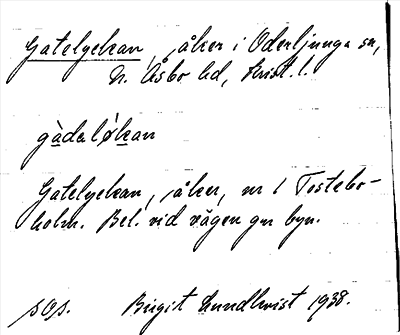 Gatelyckan, åker i Oderljunga sn,
N. Åsbo hd, Krist. l.
gàdalǿkan
Gatelyckan, åker, nr 1 Tostebo-
holm. Bel. vid vägen gm byn.
sOs. Birgit Lundkvist 1938.